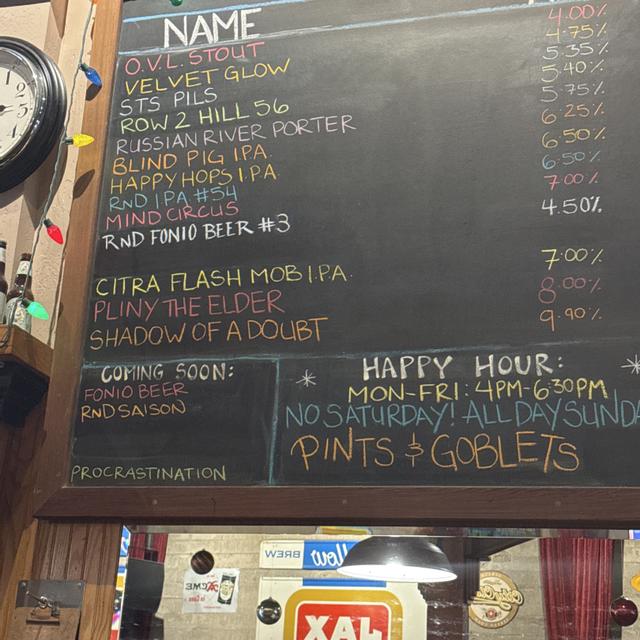 NAME
O.V.L. STOUT 4.00%
VELVET GLOW 4.75%
STS PILS 5.35%
ROW 2 HILL 56 5.40%
RUSSIAN RIVER PORTER 5.75%
BLIND PIG IPA 6.25%
HAPPY HOPS IPA 6.50%
RND IPA #54 6.50%
MIND CIRCUS 7.00%
RND FONIO BEER #3 4.50%
CITRA FLASH MOB I.P.A. 7.00%
PLINY THE ELDER 8.00%
SHADOW OF A DOUBT 9.90%
COMING SOON:
FONIO BEER
RND SAISON
PROCRASTINATION
HAPPY HOUR:
MON-FRI: 4PM-6:30PM
NO SATURDAY! ALL DAY SUNDA
PINTS & GOBLETS
BREW
ACME
JAX